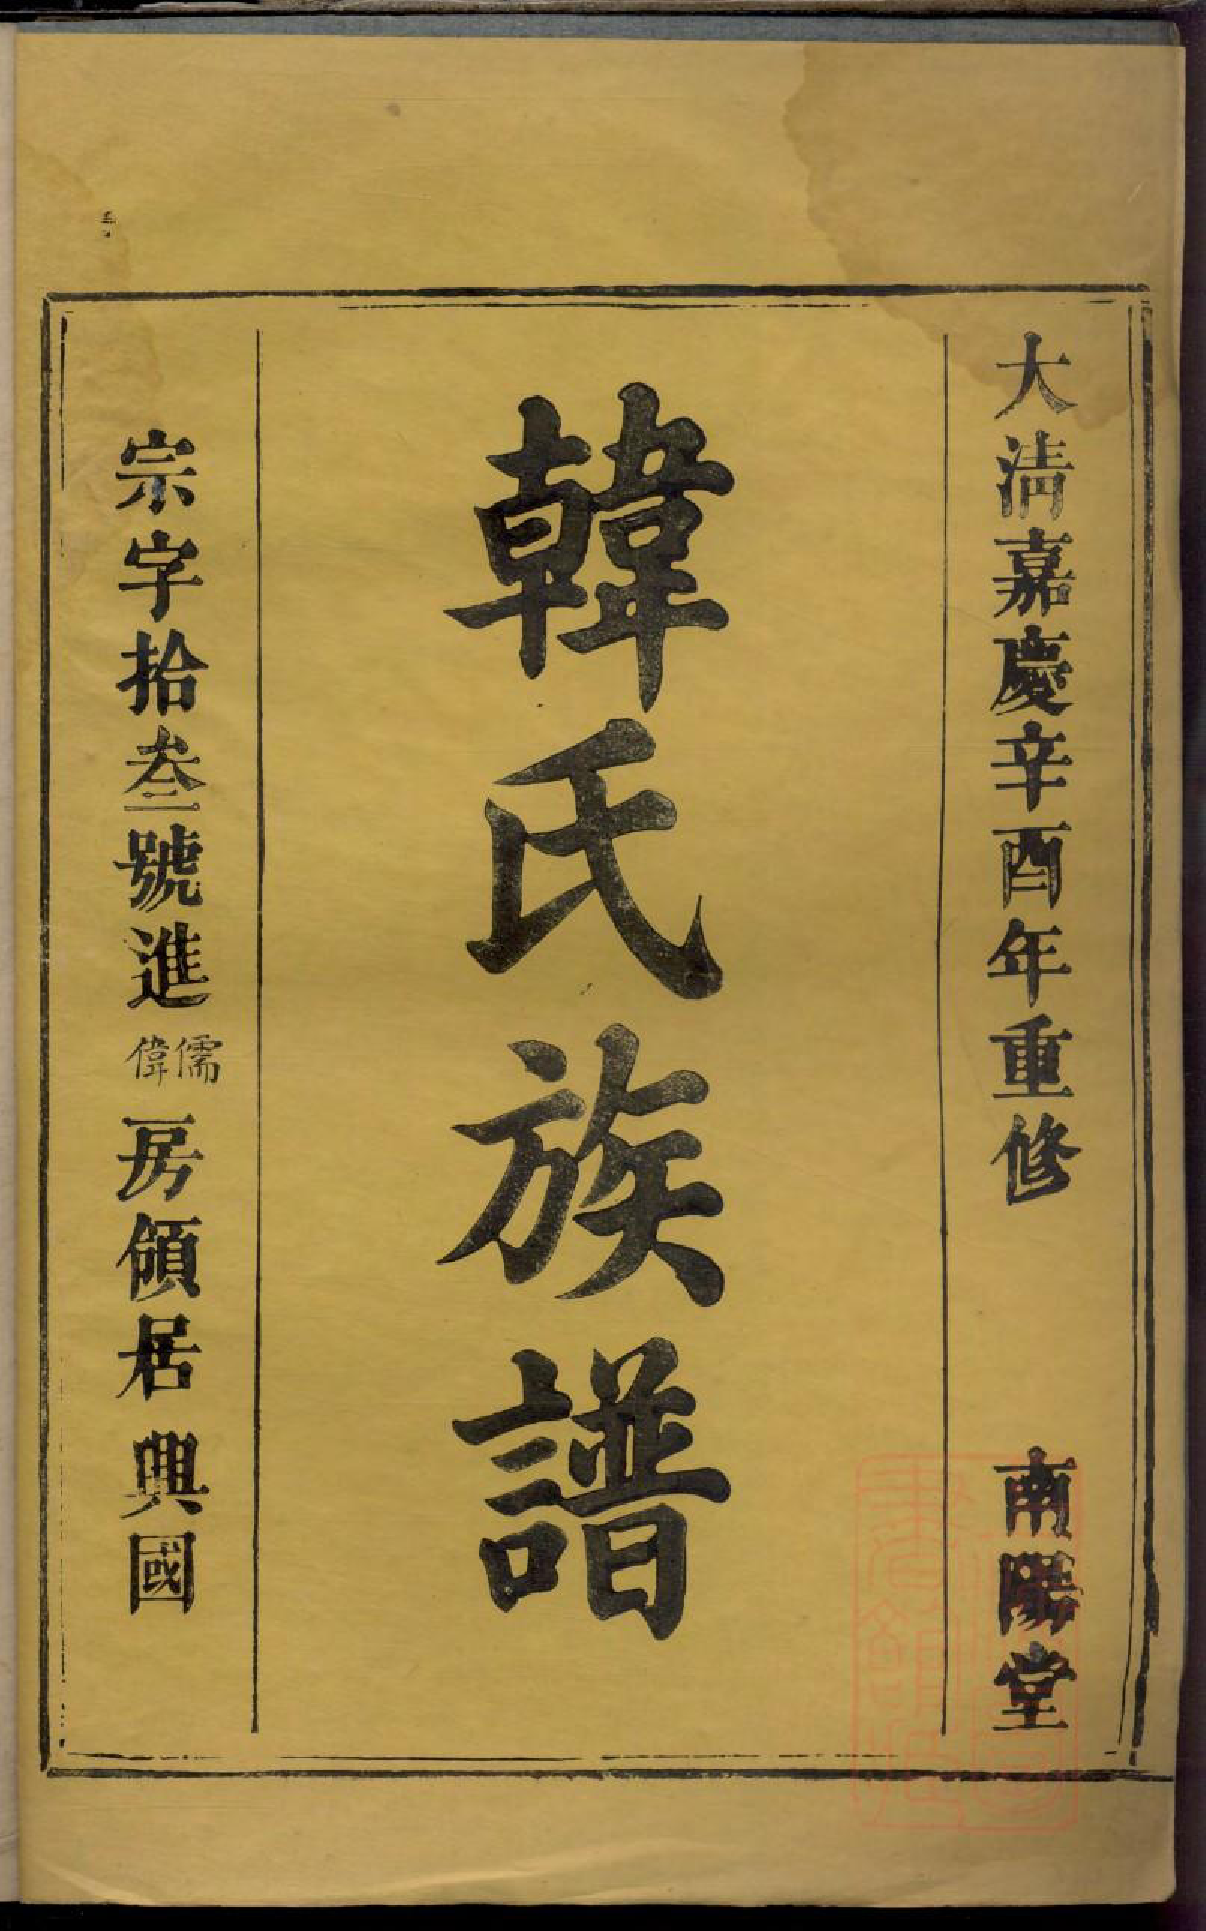 大清嘉慶辛酉年重修 南陽堂
韓氏族譜
宗字拾叁號進儒偉房領居興國